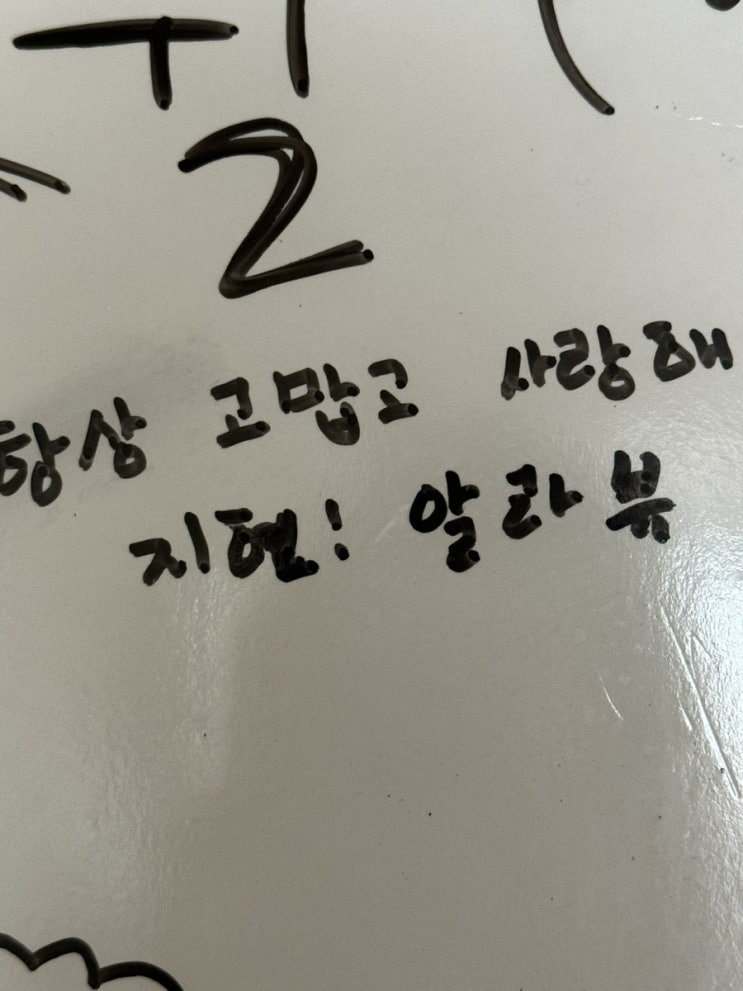 2
항상 고맙고 사랑해
지현! 알라뷰